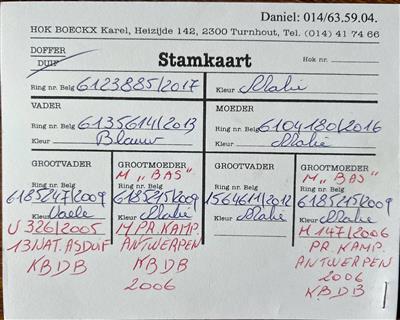 Daniel: 014/63.59.04.
HOK BOECKX Karel, Heizijde 142, 2300 Turnhout, Tel. (014) 41 74 66
DOFFER
DUIF
Stamkaart
Hok nr.
Ring nr. Belg 6123885/2017 Kleur Malie
VADER MOEDER
Ring nr. Belg 6135614/2013 Ring nr. Belg 6104180/2016
Kleur Blauw Kleur Malie
GROOTVADER GROOTMOEDER GROOTVADER GROOTMOEDER
M „BAS" M „BAS"
Ring nr. Belg Ring nr. Belg Ring nr. Belg Ring nr. Belg
6185247/2009 6185215/2009 1564611/2012 6185215/2009
Kleur Vaele Kleur Malie Kleur Malie Kleur Malie
V 326/2005 M PR. KAMP. M 147/2006
13 NAT. ASDUIF ANTWERPEN PR. KAMP.
KBDB KBDB ANTWERPEN
2006 2006
KBDB